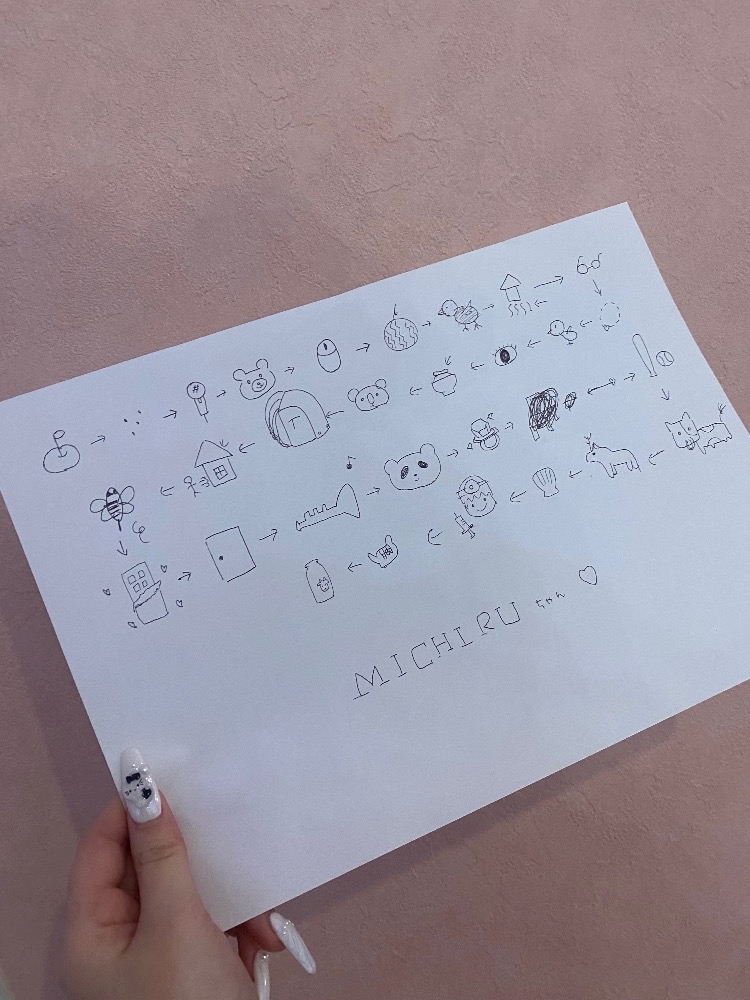 T
MICHIRU ちゃん ♡